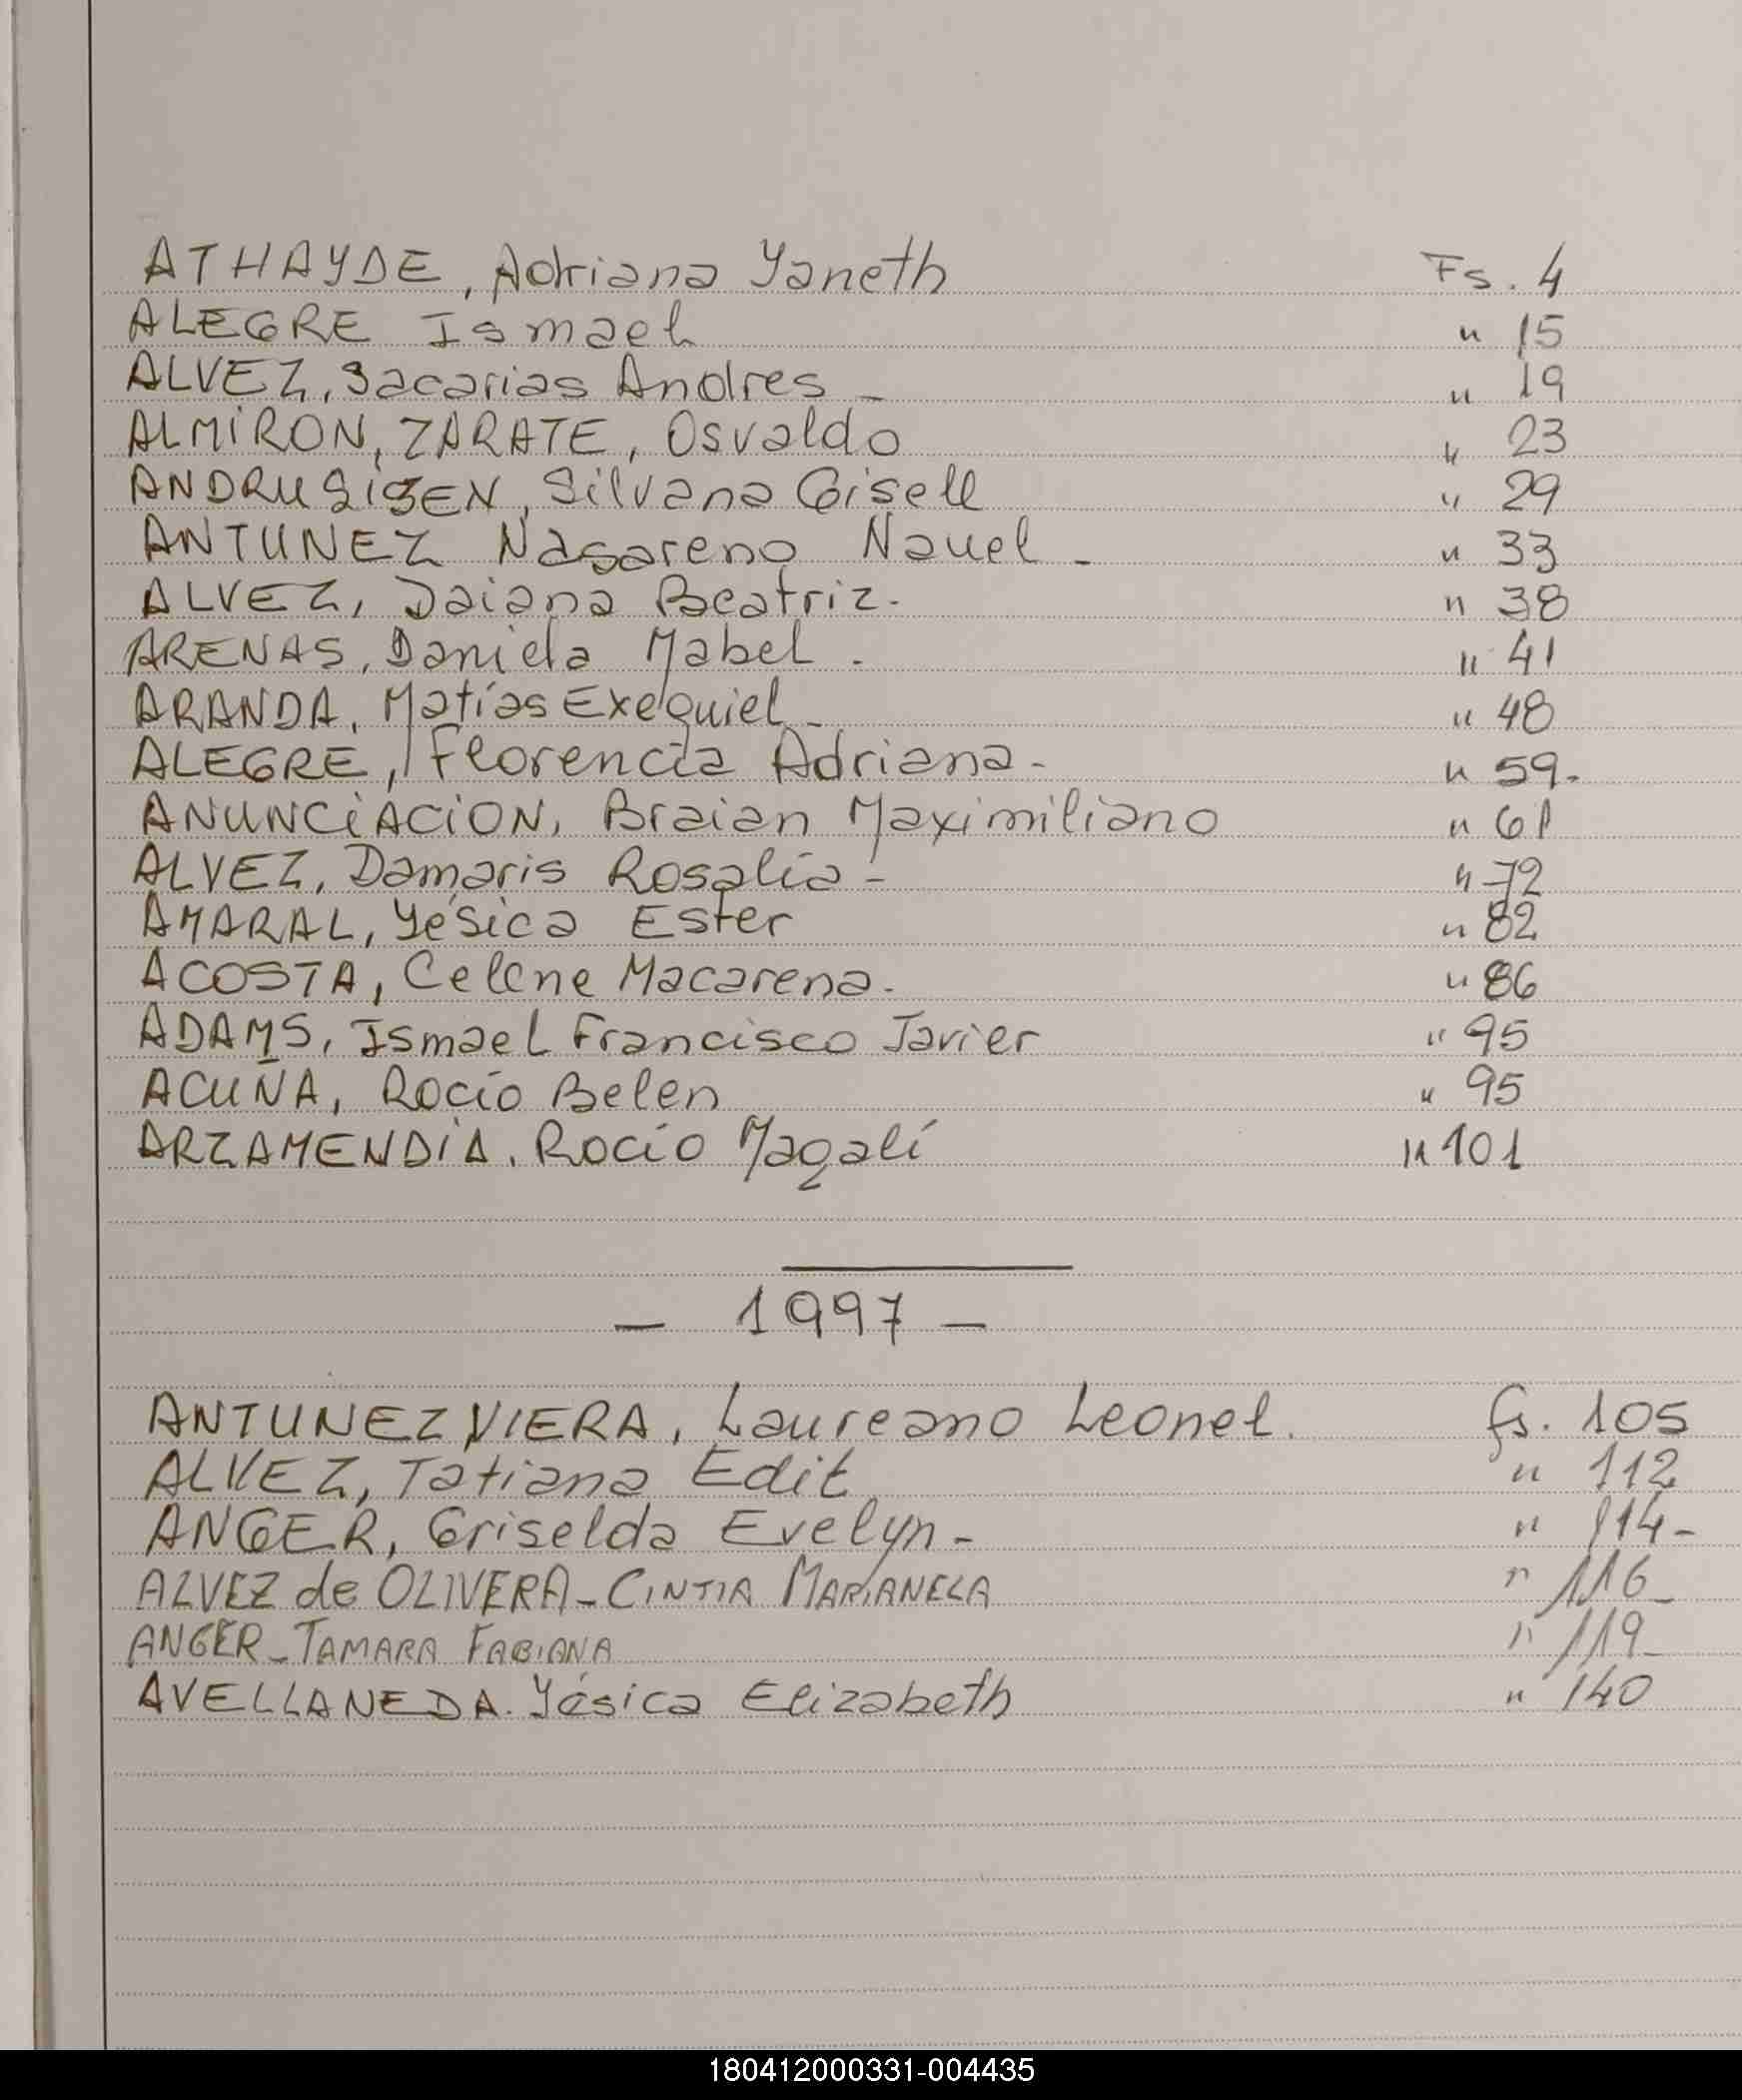 ATHAYDE, Adriana Yaneth Fs. 4
ALEGRE Ismael " 15
ALVEZ, Sacarias Andres - " 19
ALMIRON, ZARATE, Osvaldo " 23
ANDRUSISEN, Silvana Gisell " 29
ANTUNEZ Nasareno Nauel - " 33
ALVEZ, Daiana Beatriz. " 38
ARENAS, Daniela Mabel. " 41
ARANDA, Matías Exequiel - " 48
ALEGRE, Florencia Adriana - " 59.
ANUNCIACION, Braian Maximiliano " 61
ALVEZ, Damaris Rosalía - " 72
AMARAL, Yésica Ester " 82
ACOSTA, Celene Macarena. " 86
ADAMS, Ismael Francisco Javier " 95
ACUÑA, Rocío Belen " 95
ARZAMENDIA, Rocío Magalí " 101
- 1997 -
ANTUNEZ VIERA, Laureano Leonel. fs. 105
ALVEZ, Tatiana Edit " 112
ANGER, Griselda Evelyn - " 114-
ALVEZ de OLIVERA - CINTIA MARIANELA " 116-
ANGER - TAMARA FABIANA " 119-
AVELLANEDA. Yésica Elizabeth " 140
180412000331-004435